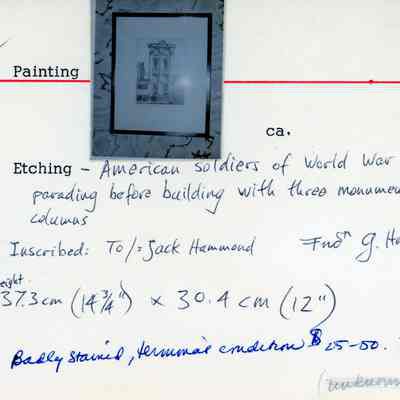 Painting
ca.
Etching - American soldiers of World War
parading before building with three monumen
columns
Inscribed: To/= Jack Hammond
G. Ha
eight
37.3 cm (14 3/4") x 30.4 cm (12")
Badly stained, terminal condition $25-50.
(unknown